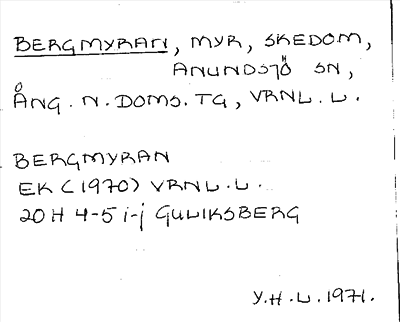 BERGMYRAN, MYR, SKEDOM,
ANUNDSJÖ SN,
ÅNG. N. DOMS. TG, VRNL. L.
BERGMYRAN
EK (1970) VRNL. L.
20 H 4-5 i-j GULIKSBERG
Y. H. L. 1971.